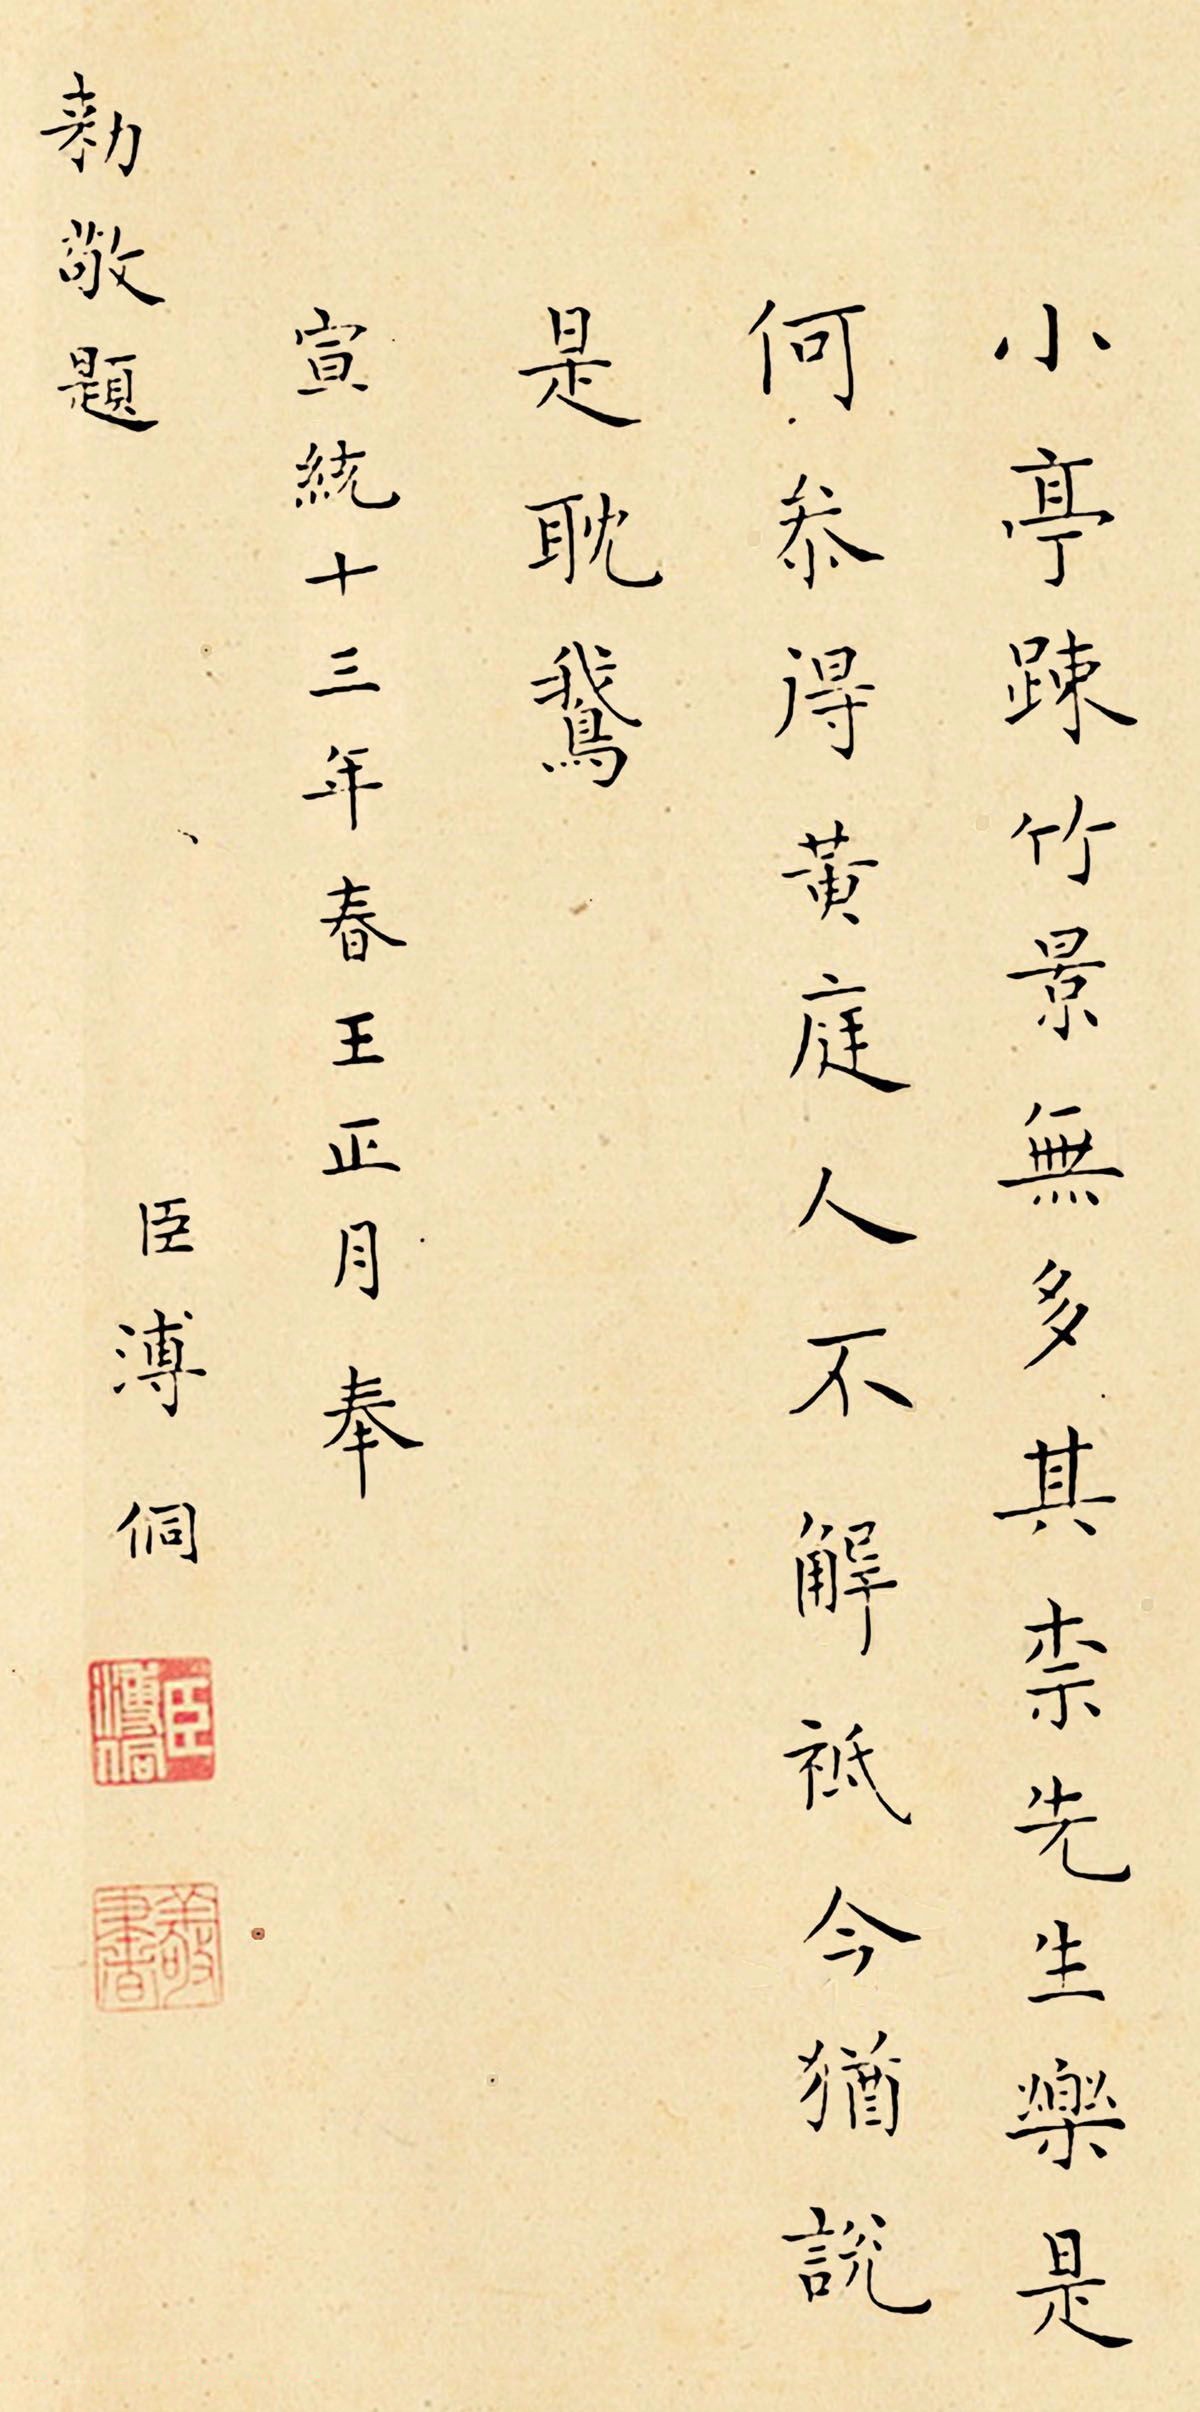 小亭踈竹景無多其柰先生樂是
何叅得黃庭人不解祗今猶說
是耽鵞
宣統十三年春王正月奉
勅敬題 臣溥侗
臣溥侗